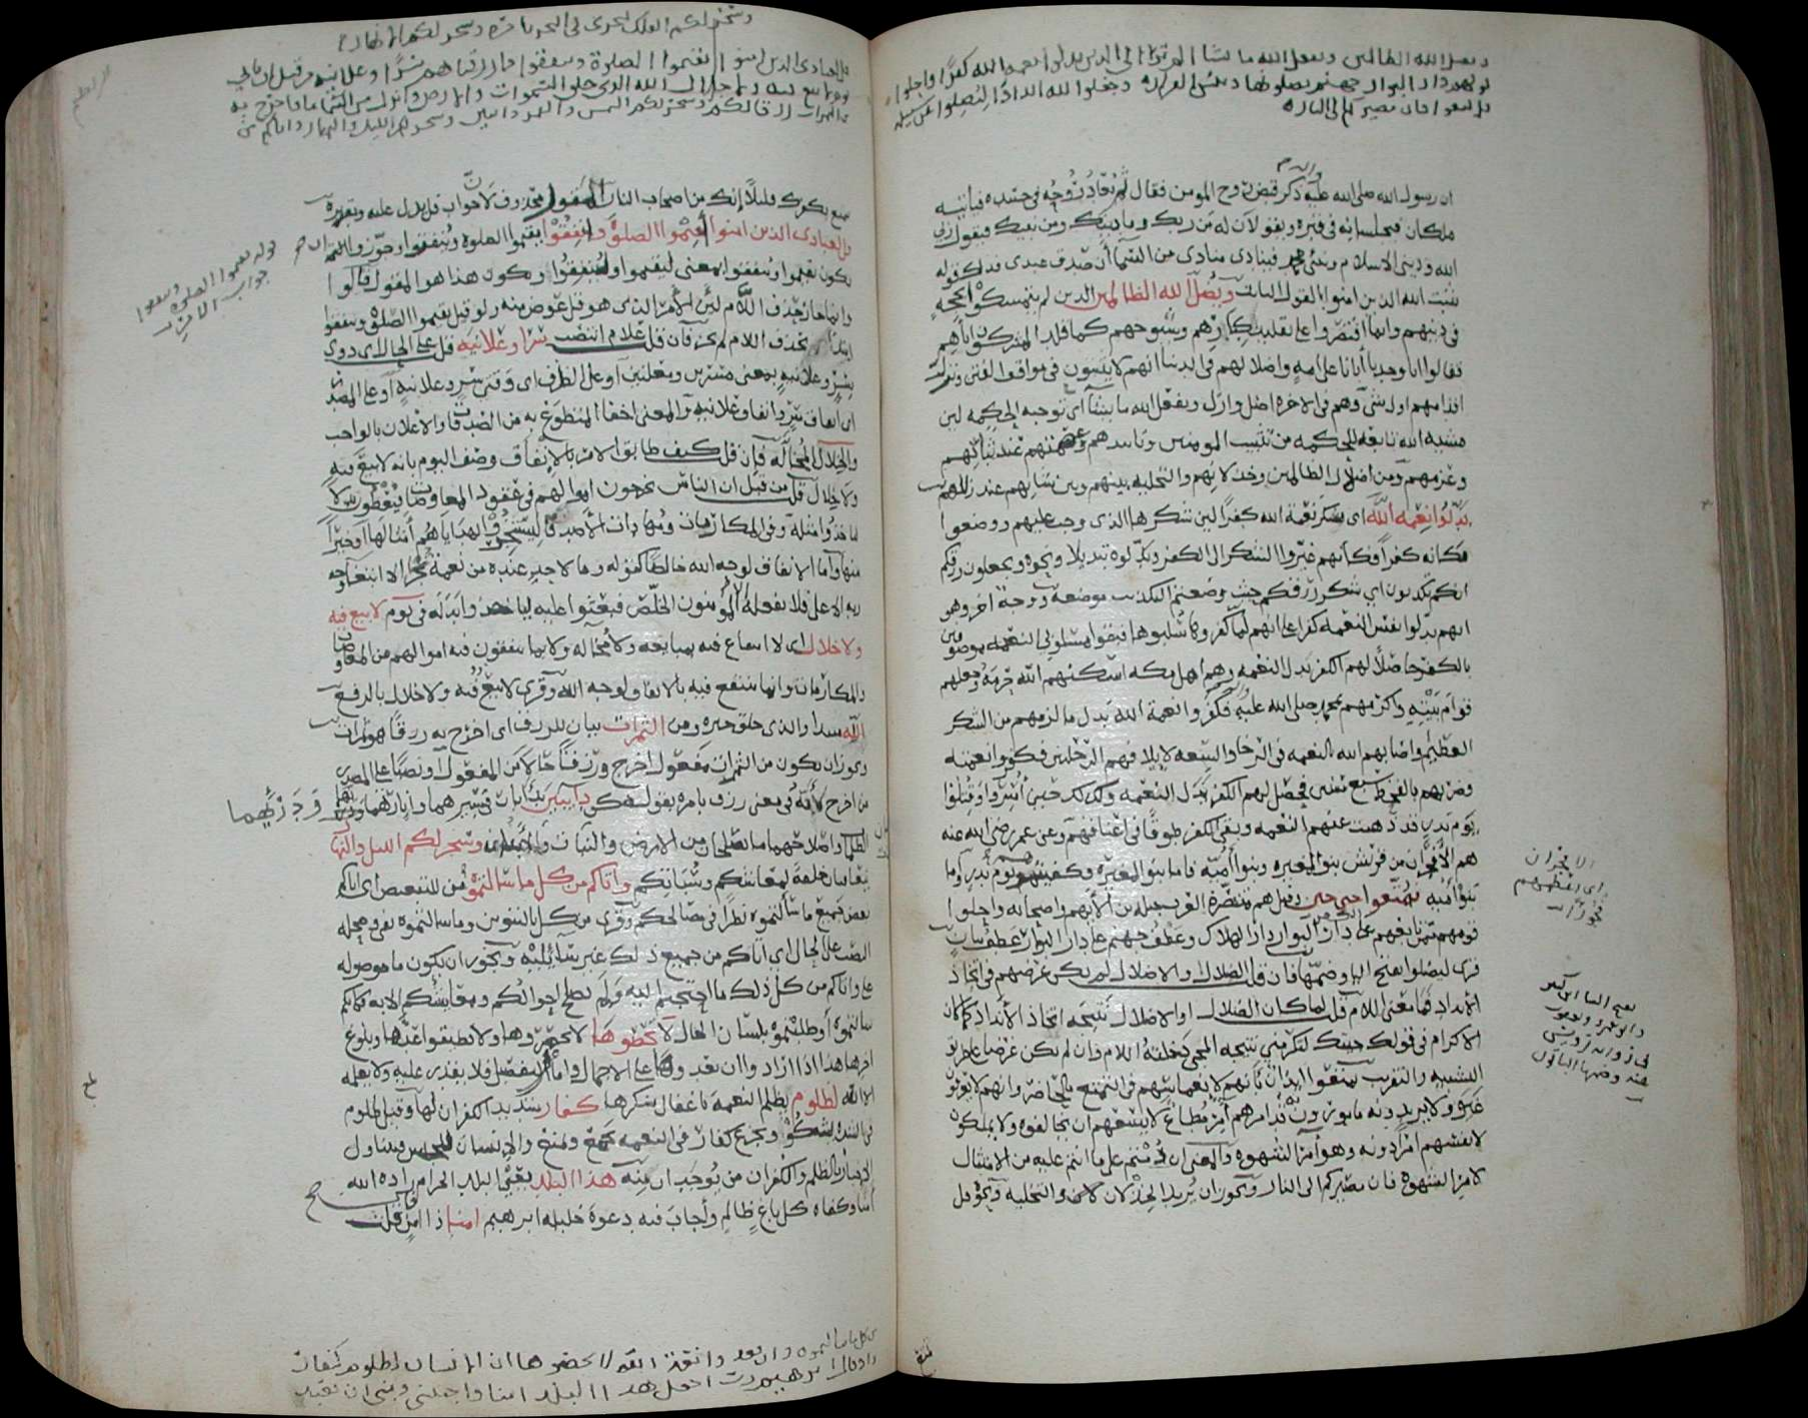 ويضل الله الظالمين ويفعل الله ما يشا الم تر الى الذين بدلوا نعمة الله كفرا واحلوا
قومهم دار البوار جهنم يصلونها وبئس القرار وجعلوا لله اندادا ليضلوا عن سبيله
قل تمتعوا فان مصيركم الى النار
ان رسول الله صلى الله عليه ذكر قبض روح المومن فقال ثم تعاد روحه في جسده فياتيه
ملكان فيجلسانه في قبره ويقولان له من ربك وما دينك ومن نبيك فيقول ربي
الله وديني الاسلام ونبيي محمد فينادي منادي من السما أن صدق عبدي فذلك قوله
يثبت الله الذين امنوا بالقول الثابت ويضل الله الظالمين الذين لم يتمسكوا بحجة
في دينهم وانما اقتصروا على تقليد كبارهم وشيوخهم كما قلد المشركون آباهم
فقالوا انا وجدنا آبانا على امة واضلالهم في الدنيا انهم لا يثبتون في مواقف الفتن وتزل
اقدامهم اول شي وهم في الاخرة اضل وازل ويفعل الله ما يشا أي توجبه الحكمة لان
مشية الله تابعة للحكمة من تثبيت المومنين وتاييدهم وعصمتهم عند ثباتهم
وعزمهم ومن اضلال الظالمين وخذلانهم والتخلية بينهم وبين شانهم عند زللهم
بدلوا نعمة الله اي شكر نعمة الله كفرا لان شكرها الذي وجب عليهم وضعوا
مكانه كفرا فكأنهم غيروا الشكر الى الكفر وبدلوه تبديلا ونحوه وتجعلون رزقكم
انكم تكذبون اي شكر رزقكم حيث وضعتم التكذيب موضعه ووجه اخر وهو
انهم بدلوا نفس النعمة كفرا على انهم لما كفروها سلبوها فبقوا مسلوبي النعمة موصوفين
بالكفر حاصلا لهم الكفر بدل النعمة وهم اهل مكه اسكنهم الله حرمه وجعلهم
قوام بيته واكرمهم بمحمد صلى الله عليه فكفروا نعمة الله بدل ما لزمهم من الشكر
العظيم واصابهم الله بالنعمة في الرخا والسعة لايلافهم الرحلتين فكفروا نعمته
وضربهم بالقحط سبع سنين فحصل لهم الكفر بدل النعمة وكذلك حين أسروا وقتلوا
يوم بدر قد ذهبت عنهم النعمة وبقي الكفر طوقا في اعناقهم وعن عمر رضي الله عنه
هم الأفجران من قريش بنو المغيرة وبنو أمية فاما بنو المغيرة فكفيتموهم يوم بدر وأما
بنو أمية فمتعوا حتى حين وقيل هم متنصرة العرب جبلة بن الأيهم واصحابه واحلوا
قومهم ممن تابعهم على الكفر دار البوار دار الهلاك وعطف جهنم على دار البوار عطف بيان
قرى ليضلوا بفتح اليا وضمها فان قلت الضلال والاضلال لم يكن غرضهم في اتخاذ
الأنداد فما معنى اللام قلت لما كان الضلال او الاضلال نتيجة اتخاذ الأنداد كما كان
الاكرام في قولك جيتك لتكرمني نتيجة المجي دخلته اللام وان لم يكن غرضا على طريق
التشبيه والتقريب تمتعوا ايذان بأنهم لانغماسهم في التمتع بالحاضر وانهم لا يعرفون
غيره ولا يريدونه مامورون به قد امرهم آمر مطاع لا يسعهم ان يخالفوه ولا يملكون
لانفسهم امرا دونه وهو امر الشهوة والمعنى ان دمتم على ما انتم عليه من الامتثال
لامر الشهوة فان مصيركم الى النار ويجوز ان يريد الخذلان والتخلية ونحوه قل
وسخر لكم الفلك لتجري في البحر بامره وسخر لكم الانهار
قل لعبادي الذين امنوا يقيموا الصلوة وينفقوا مما رزقناهم سرا وعلانية من قبل ان ياتي
يوم لا بيع فيه ولا خلال الله الذي خلق السموات والارض وانزل من السما ما فاخرج به
من الثمرات رزقا لكم وسخر لكم الشمس والقمر دائبين وسخر لكم الليل والنهار واتاكم من
تمتع بكفرك قليلا إنك من اصحاب النار المقول محذوف لان جواب قل يدل عليه وتقديره
قل لعبادي الذين امنوا أقيموا الصلوة وأنفقوا يقيموا الصلوة وينفقوا وجوزوا ان
يكون يقيموا وينفقوا بمعنى ليقيموا ولينفقوا ويكون هذا هو المقول قالوا
وانما جاز حذف اللام لأن الأمر الذي هو قل عوض منه ولو قيل يقيموا الصلوة وينفقوا
ابتدا بحذف اللام لم يجز فان قلت علام انتصب سرا وعلانية قلت على الحال اي ذوي
سر وعلانية بمعنى مسرين ومعلنين أو على الظرف اي وقتي سر وعلانية أو على المصدر
اي انفاق سر وانفاق علانية والمعنى اخفا المتطوع به من الصدقات والاعلان بالواجب
والخلال المخالة فإن قلت كيف طابق الامر بالإنفاق وصف اليوم بانه لا بيع فيه
ولا خلال قلت من قبل ان الناس يخرجون اموالهم في عقود المعاوضات فيعطون بدلا
لياخذوا مثله وفي المكارمات ومهادات الأصدقا ليستجروا بهداياهم أمثالها أو خيرا
منها وأما الانفاق لوجه الله خالصا كقوله وما لاحد عنده من نعمة تجزى الا ابتغا وجه
ربه الاعلى فلا يفعله الا المؤمنون الخلص فبعثوا عليه لياخذوا بدله في يوم لا بيع فيه
ولا خلال اي لا انتفاع فيه بمبايعة ولا مخالة ولا بما ينفقون فيه اموالهم من المعاوضات
والمكارمات وانما ينتفع فيه بالانفاق لوجه الله وقرى لا بيع فيه ولا خلال بالرفع
الله مبتدا والذي خلق خبره ومن الثمرات بيان للرزق اي اخرج به رزقا هو ثمرات
ويجوز ان يكون من الثمرات مفعول اخرج ورزقا حالا من المفعول او نصبا على المصدر
من اخرج لأنه في معنى رزق بامره بقوله كن دايبين يدأبان في سيرهما وانارتهما ودرئهما
الظلمات واصلاحهما ما يصلحان من الارض والنبات والأبدان وسخر لكم الليل والنهار
يتعاقبان خلفة لمعاشكم وسباتكم واتاكم من كل ما سالتموه من للتبعيض اي اتاكم
بعض جميع ما سألتموه نظرا في مصالحكم وقرى من كل بالتنوين وما سالتموه نفي ومحله
النصب على الحال اي اتاكم من جميع ذلك غير سائليه ويجوز ان يكون ما موصولة
على واتاكم من كل ذلك ما احتجتم اليه ولم تصلح احوالكم ومعايشكم الا به فكانكم
سالتموه أو طلبتموه بلسان الحال لا تحصوها لا تحصروها ولا تطيقوا عدها وبلوغ
اخرها هذا اذا ارادوا ان يعدوها على الاجمال واما التفصيل فلا يقدر عليه ولا يعلمه
الا الله لظلوم يظلم النعمة باغفال شكرها كفار شديد الكفران لها وقيل ظلوم
في الشدة يشكو ويجزع كفار في النعمة يجمع ويمنع والإنسان للجنس فيتناول
الإخبار بالظلم والكفران من يوجدان منه هذا البلد يعني البلد الحرام زاده الله
أمنا وكفاه كل باغ وظالم وأجاب فيه دعوة خليله ابرهيم امنا ذا امن فان قلت
قوله يقيموا الصلوة وينفقوا
جواب الامر
ودرئهما
الافجران
من كل ما سالتموه وان تعدوا نعمة الله لا تحصوها ان الانسان لظلوم كفار
واذ قال ابرهيم رب اجعل هذا البلد امنا واجنبني وبني ان نعبد